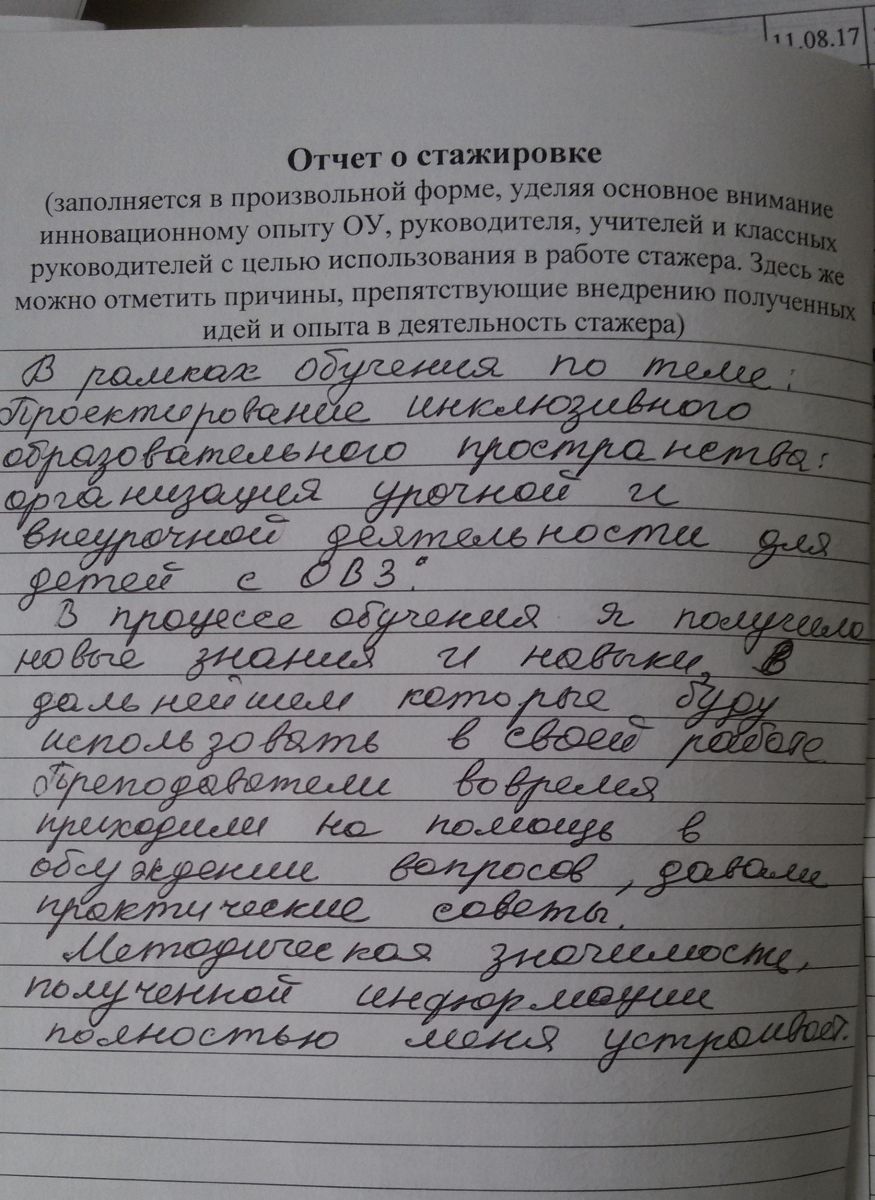 11.08.17
Отчет о стажировке
(заполняется в произвольной форме, уделяя основное внимание
инновационному опыту ОУ, руководителя, учителей и классных
руководителей с целью использования в работе стажера. Здесь же
можно отметить причины, препятствующие внедрению полученных
идей и опыта в деятельность стажера)
В рамках обучения по теме:
Проектирование инклюзивного
образовательного пространства:
организация урочной и
внеурочной деятельности для
детей с ОВЗ:
В процессе обучения я получила
новые знания и навыки, в
дальнейшем которые буду
использовать в своей работе
Преподаватели вовремя
приходили на помощь в
обсуждении вопросов, давали
практические советы.
Методическая значимость,
полученной информации
полностью меня устраивает.